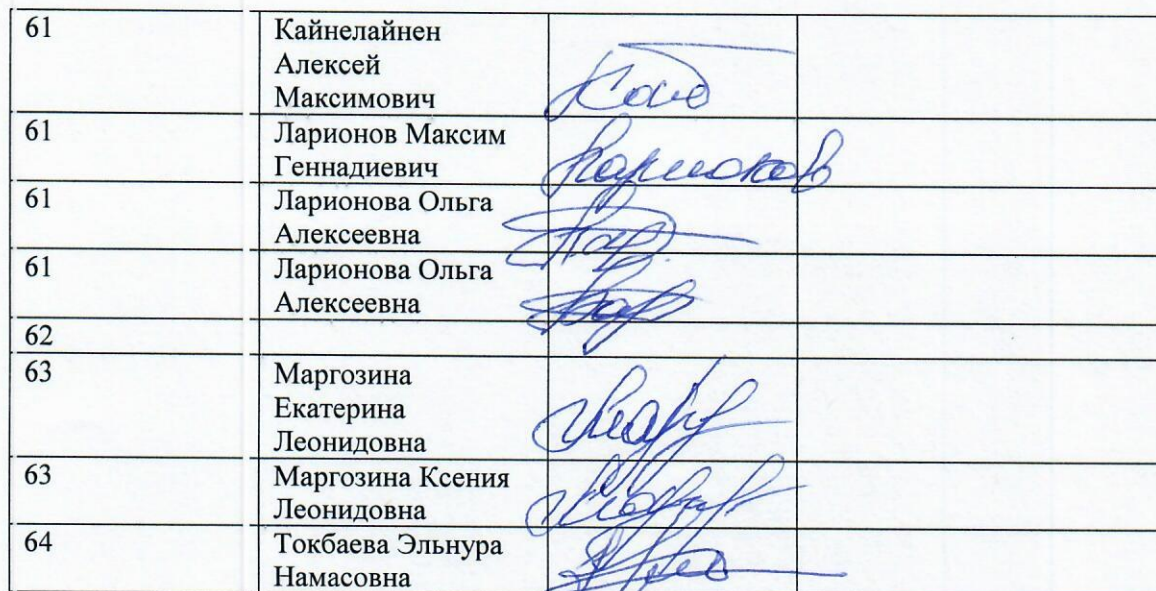 61 Кайнелайнен
Алексей
Максимович
61 Ларионов Максим
Геннадиевич
61 Ларионова Ольга
Алексеевна
61 Ларионова Ольга
Алексеевна
62
63 Маргозина
Екатерина
Леонидовна
63 Маргозина Ксения
Леонидовна
64 Токбаева Эльнура
Намасовна